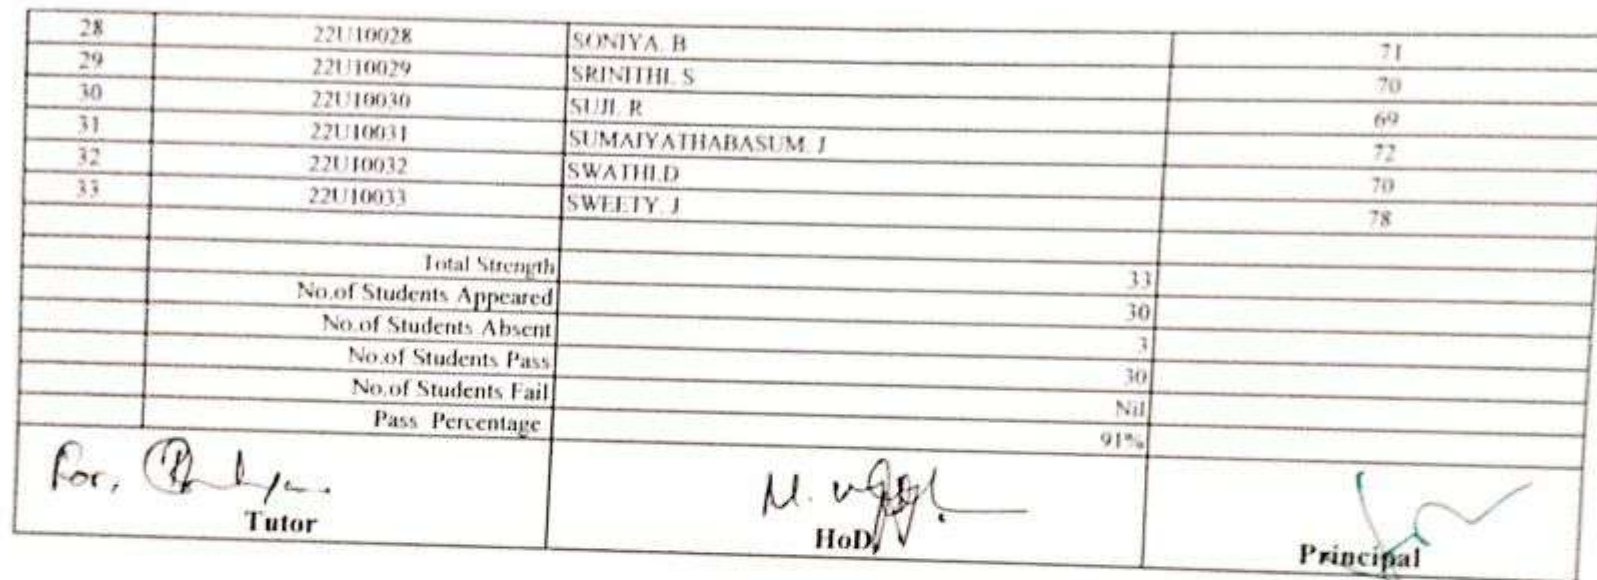 28 22U10028 SONIYA. B 71
29 22U10029 SRINITHI. S 70
30 22U10030 SUJI. R 69
31 22U10031 SUMAIYATHABASUM. J 72
32 22U10032 SWATHI.D 70
33 22U10033 SWEETY. J 78
Total Strength 33
No.of Students Appeared 30
No.of Students Absent 3
No.of Students Pass 30
No.of Students Fail Nil
Pass Percentage 91%
For,
Tutor HoD Principal